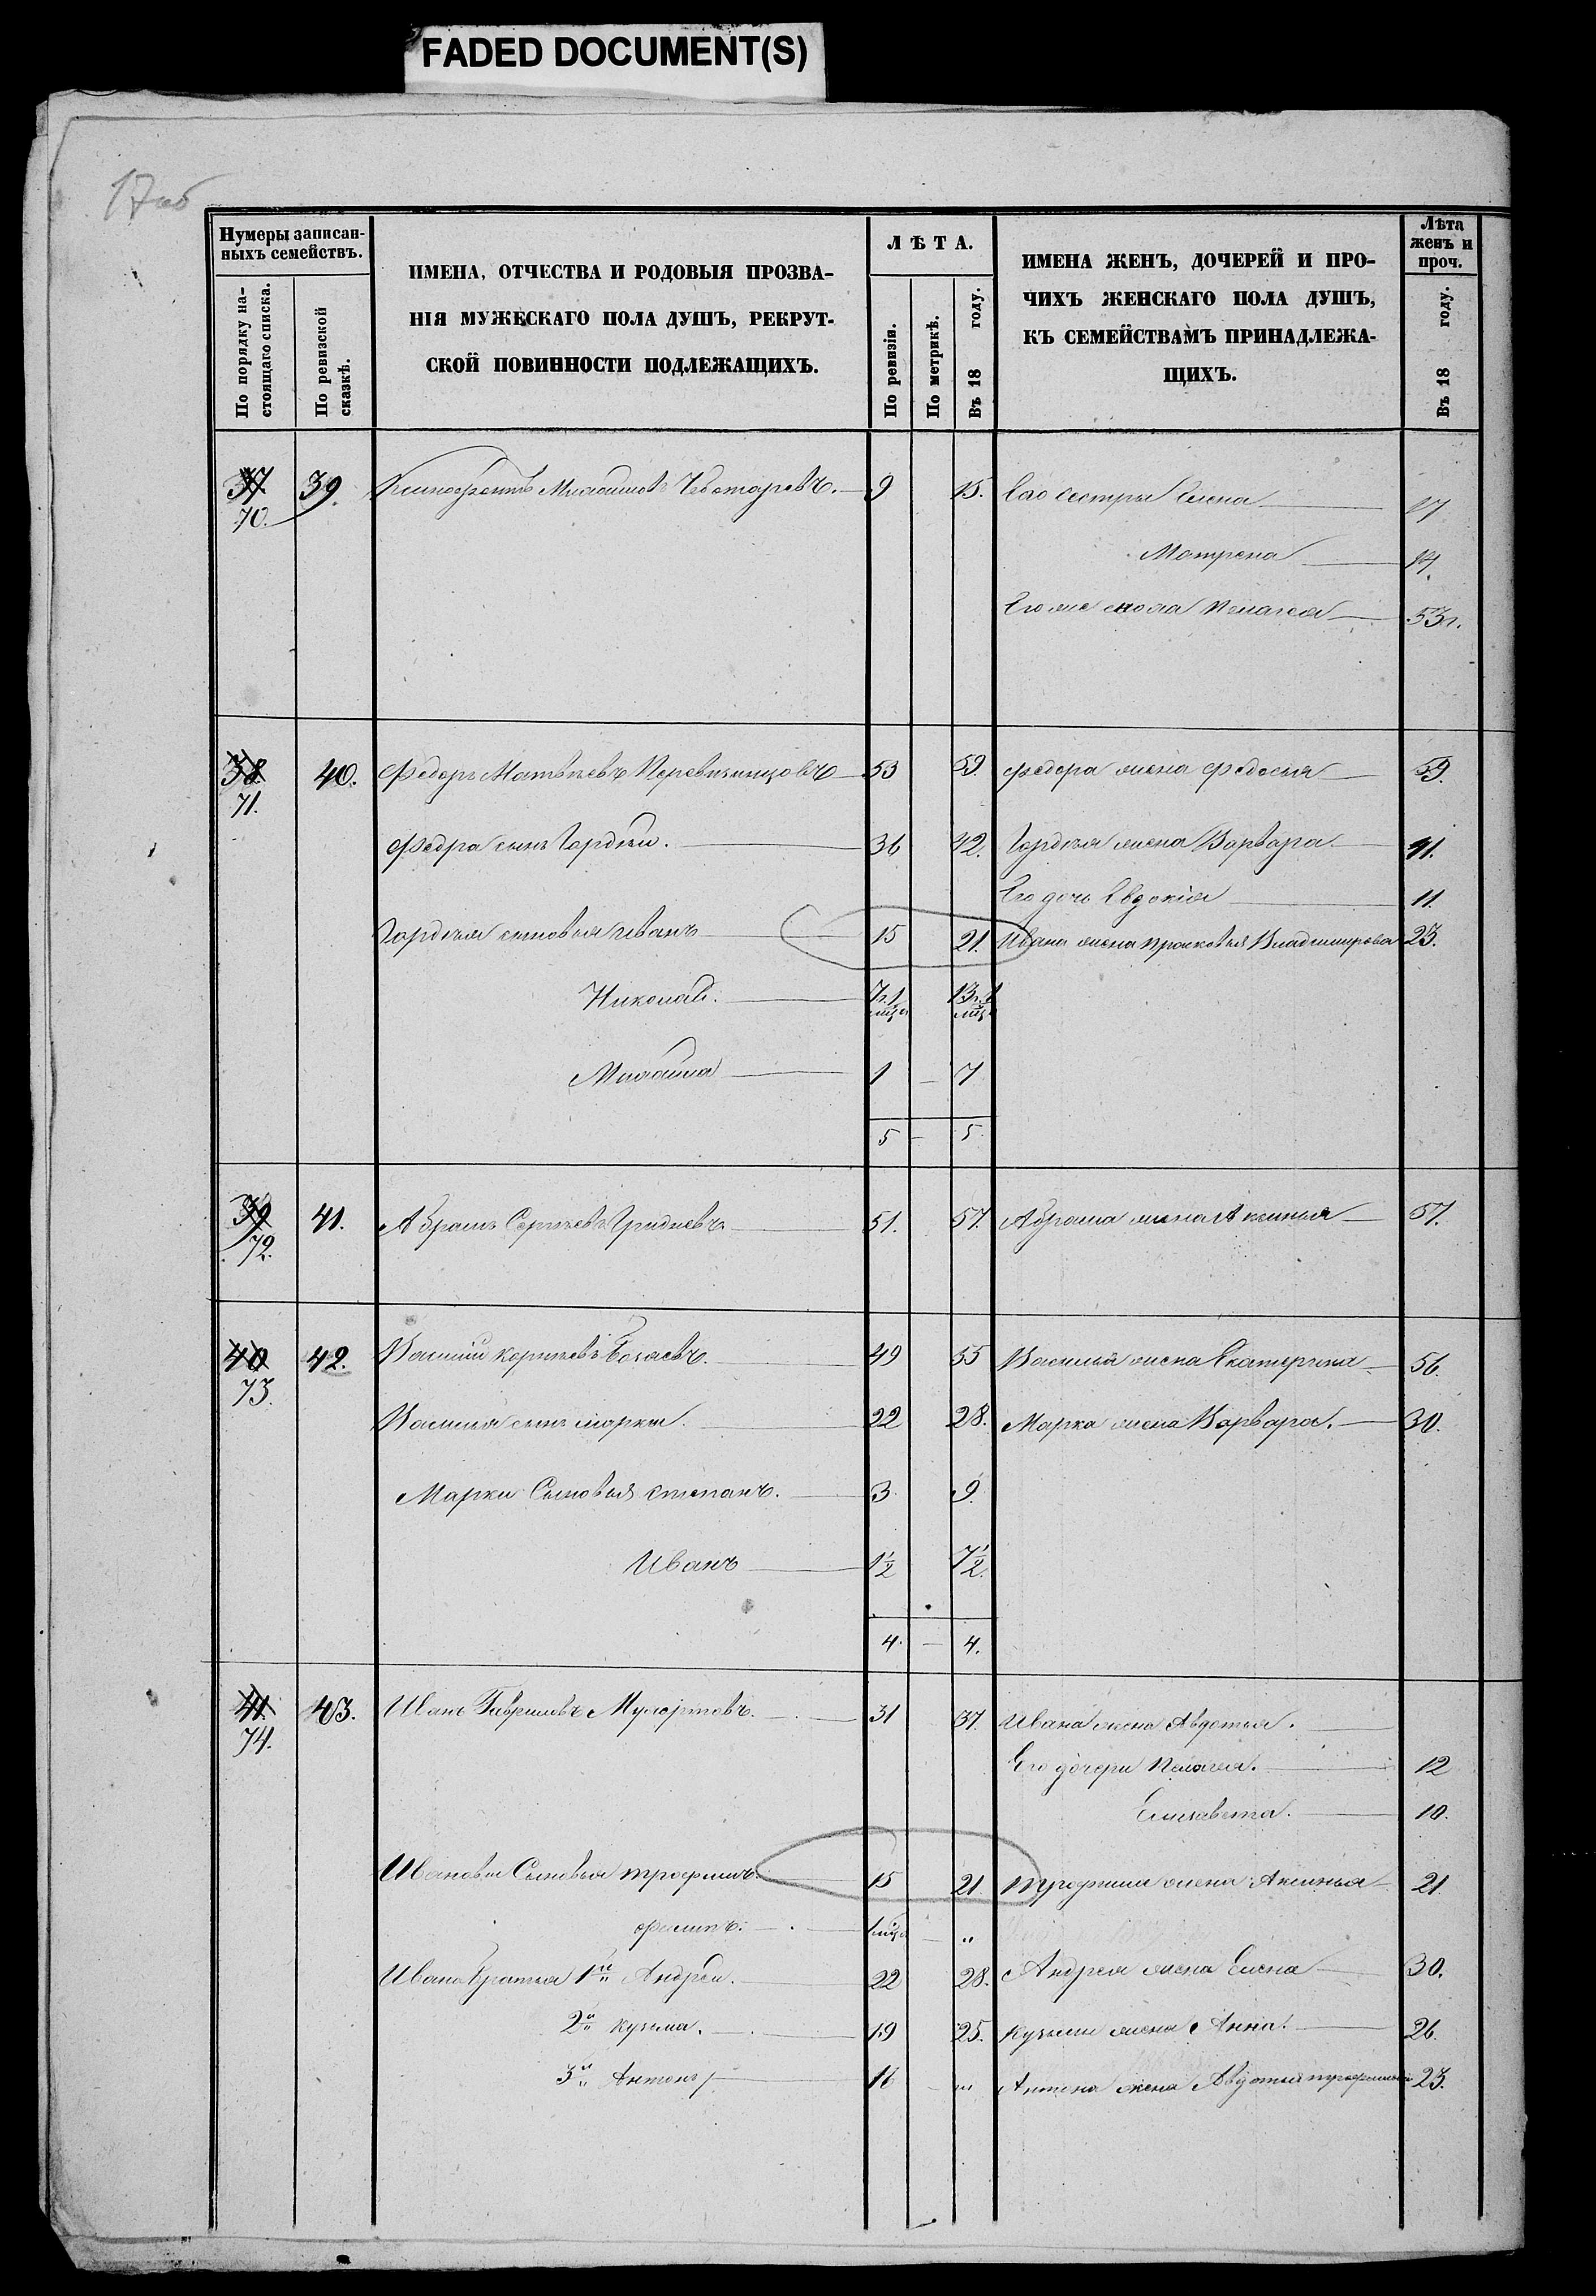 FADED DOCUMENT(S)
17об
Нумеры записан-
ныхъ семействъ.
По порядку на-
стоящаго списка.
По ревизской
сказкѣ.
ИМЕНА, ОТЧЕСТВА И РОДОВЫЯ ПРОЗВА-
НІЯ МУЖЕСКАГО ПОЛА ДУШЪ, РЕКРУТ-
СКОЙ ПОВИННОСТИ ПОДЛЕЖАЩИХЪ.
ЛѢТА.
По ревизіи.
По метрикѣ.
Въ 18 году.
ИМЕНА ЖЕНЪ, ДОЧЕРЕЙ И ПРО-
ЧИХЪ ЖЕНСКАГО ПОЛА ДУШЪ,
КЪ СЕМЕЙСТВАМЪ ПРИНАДЛЕЖА-
ЩИХЪ.
Лѣта
женъ и
проч.
Въ 18 году.
37 39. Чеботаревъ. 9 15. Его сестры Елена 17
70.
Матрена 14.
Пелагея 53
38 40. Федоръ Матвѣевъ 53 59. Федора жена Федосья 59.
71.
Федра сынъ Гордѣй. 36 42. Гордѣя жена Варвара 41.
Его дочь Евдокія 11.
Гордѣя сыновья Иванъ 15 21. Ивана жена Прасковья Владимирова 23.
Николай. 7 13
Михайла 1 – 7
5 – 5.
39 41. Абрамъ Сергѣевъ Гридневъ 51. 57. Абрама жена Аксинья 57.
72.
40 42. Василій 49 55 Василья жена Екатерина 56.
73.
Василья сынъ Марки. 22 28. Марка жена Варвара. 30.
Марки Сыновья Степанъ. 3 9.
Иванъ 1½ 7½.
4. – 4.
41. 43. Иванъ Гавриловъ 31 37. Ивана жена Авдотья.
74.
Его дочери Пелагея. 12
Елизавета. 10.
Ивановы Сыновья Трофимъ. 15 21. Трофима жена Аксинья 21.
Филипъ. „
Ивана Братья 1й Андрей. 22 28. Андрея жена Елена 30.
2й Кузьма. 19 25. Кузьмы жена Анна. 26.
3й Антонъ 16 „ Антона жена Авдотья 23.